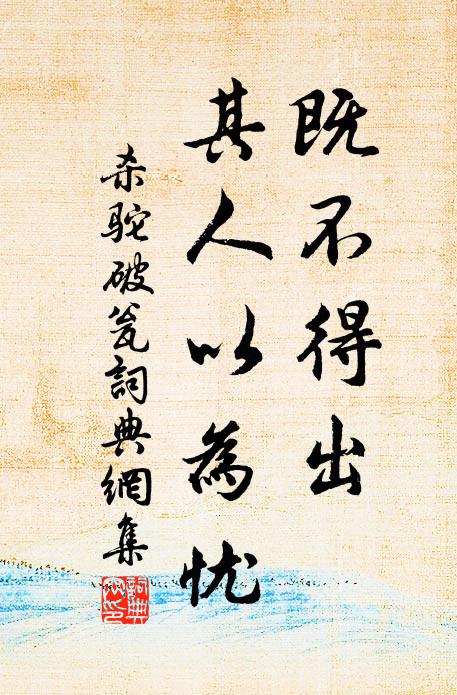 既不得出
其人以為忧
杀駝破瓮詞典網集